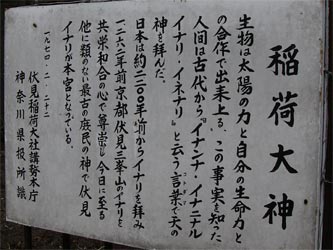 稲荷大神
生物は太陽の力と自分の生命力と
の合作で出来上る、この事実を知った
人間は古代から「イナンナ・イナニナル
イナリ・イネナリ」と云う言葉で天の
神を拝んだ。
日本は約二二〇〇年前からイナリを拝み
一二六三年前京都伏見三峯山のイナリを
共栄和合の心で尊崇し今日に至る
他に類のない最古の庶民の神で伏見
イナリが本宮となっている。
一九七四・二・二十二
伏見稲荷大社講務本庁
神奈川県役所議